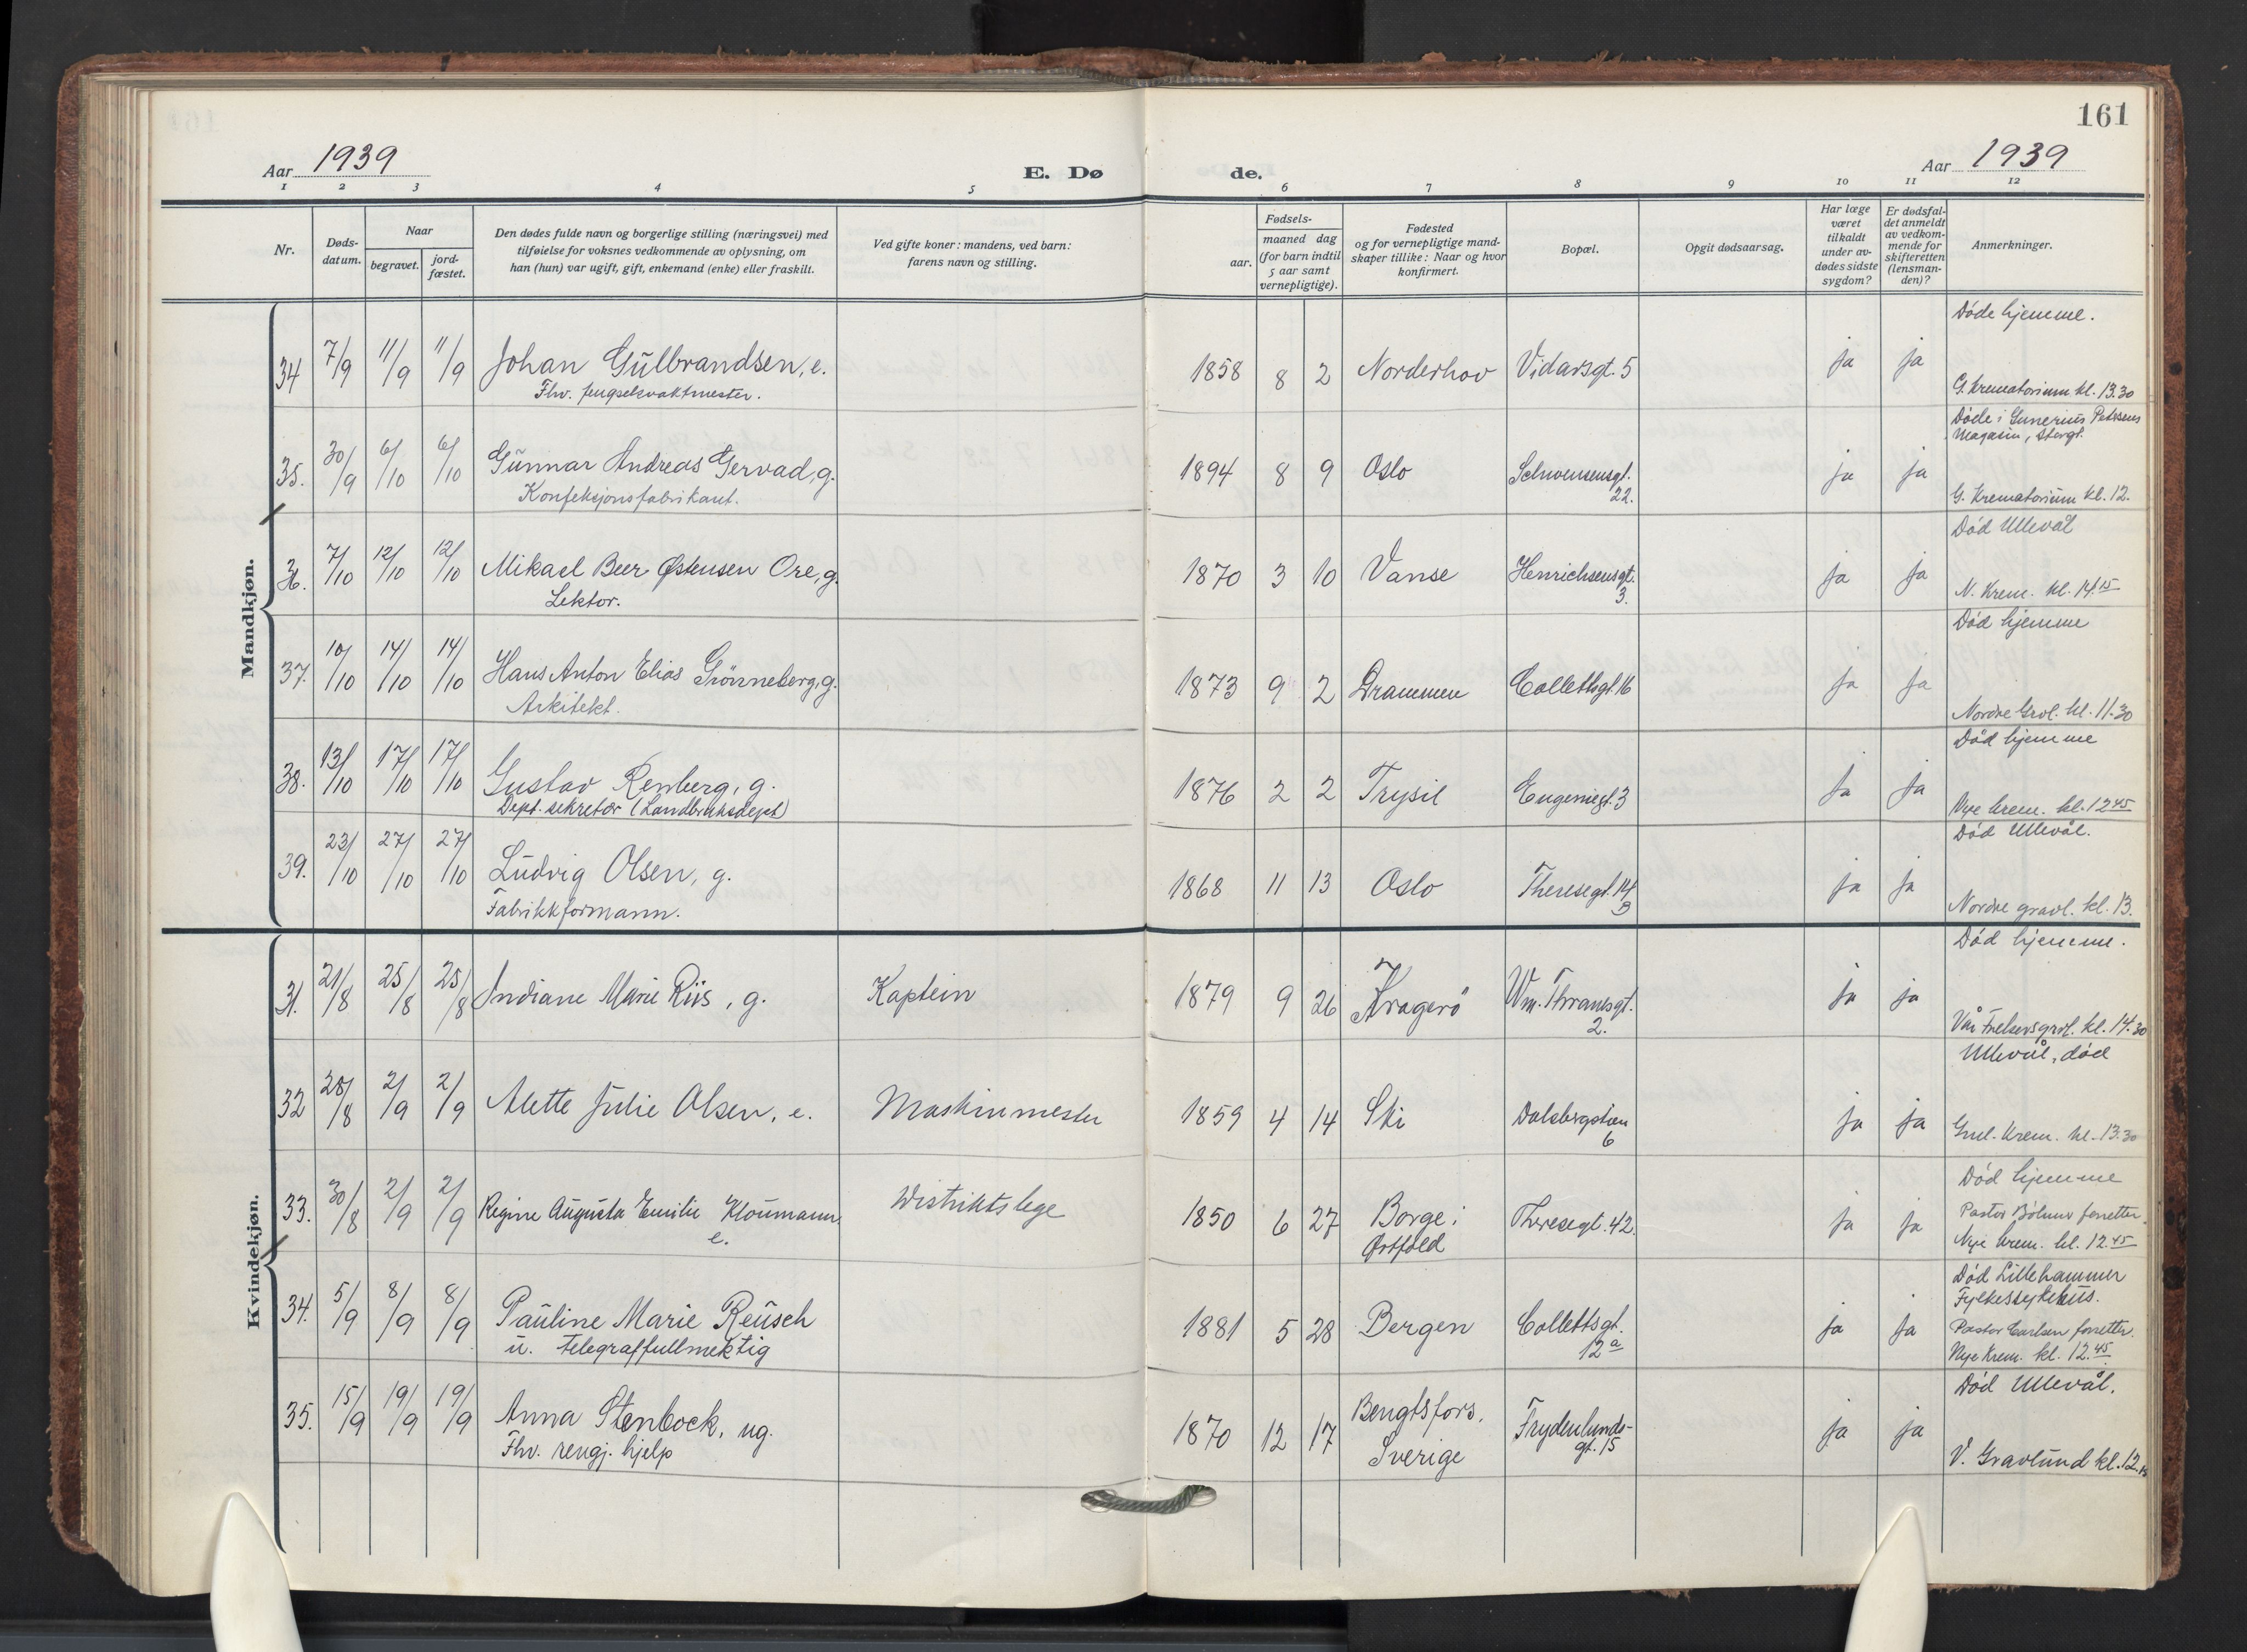 161
Aar 1939
E. Dø de.
Aar 1939
1 2 3 4 5 6 7 8 9 10 11 12
Nr.
Døds-
datum.
Naar
begravet.
jord-
fæstet.
Den dødes fulde navn og borgerlige stilling (næringsvei) med
tilføielse for voksnes vedkommende av oplysning, om
han (hun) var ugift, gift, enkemand (enke) eller fraskilt.
Ved gifte koner: mandens, ved barn:
farens navn og stilling.
Fødsels-
aar.
maaned dag
(for barn indtil
5 aar samt
vernepligtige).
Fødested
og for vernepligtige mand-
skaper tillike: Naar og hvor
konfirmert.
Bopæl.
Opgit dødsaarsag.
Har læge
været
tilkaldt
under av-
dødes sidste
sygdom?
Er dødsfal-
det anmeldt
av vedkom-
mende for
skifteretten
(lensman-
den)?
Anmerkninger.
Mandkjøn.
Døde hjemme.
34 7/9 11/9 11/9 Johan Gulbrandsen, e. 1858 8 2 Norderhov Vidarsgt. 5 ja ja
Fhv. fengselsvaktmester.
G. Krematorium kl. 13.30
Døde i Gunerius Pettersens
Magasin, Storgt.
35. 30/9 6/10 6/10 Gunnar Andreas Gervad, g. 1894 8 9 Oslo Schwensensgt. 22. ja ja
Konfeksjonsfabrikant.
G. Krematorium kl. 12.
Død Ullevål
36. 7/10 12/10 12/10 Mikael Beer Østensen Ore, g. 1870 3 10 Vanse Henrichsensgt. 3. ja ja
Lektor.
N. Krem. kl. 14.15
Død hjemme
37. 10/10 14/10 14/10 Hans Anton Elias Grønneberg, g. 1873 9 2 Drammen Collettsgt. 16 ja ja
Arkitekt.
Nordre Gravl. kl. 11.30
Død hjemme
38. 13/10 17/10 17/10 Gustav Renberg, g. 1876 2 2 Trysil Eugeniegt. 3 ja ja
Dept. sekretær (Landbruksdept)
Nye krem. kl. 12 45
Død Ullevål.
39. 23/10 27/10 27/10 Ludvig Olsen, g. 1868 11 13 Oslo Theresegt. 14 B ja ja
Fabrikkformann.
Nordre gravl. kl. 13.
Kvindekjøn.
Død hjemme.
31. 21/8 25/8 25/8 Indiane Marie Riis, g. Kaptein 1879 9 26 Kragerö Wm. Thranesgt. 2. ja ja
Vår Frelsersgrvl. kl. 14.30
Ullevål, død
32 28/8 2/9 2/9 Alette Julie Olsen, e. Maskinmester 1859 4 14 Ski Dalsbergstien 6 ja ja
Gml. Krem. kl. 13.30
Død hjemme
33. 30/8 2/9 2/9 Regine Augusta Emilie Kloumann, e. Distriktslege 1850 6 27 Borge i Østfold Theresegt. 42. ja ja
Pastor forretter.
Nye krem. kl. 12.45
Død Lillehammer
Fylkessykehus.
34. 5/9 8/9 8/9 Pauline Marie Reusch 1881 5 28 Bergen Collettsgt. 12 a ja ja
u. Telegraffullmektig
Pastor Carlsen forretter.
Nye Krem. kl. 12.45.
Død Ullevål.
35. 15/9 19/9 19/9 Anna Stenbock, ug. 1870 12 17 Bengtsfors, Sverige Frydenlunds- gt. 15 ja ja
Fhv. rengj. hjelp
V. Gravlund kl. 12.